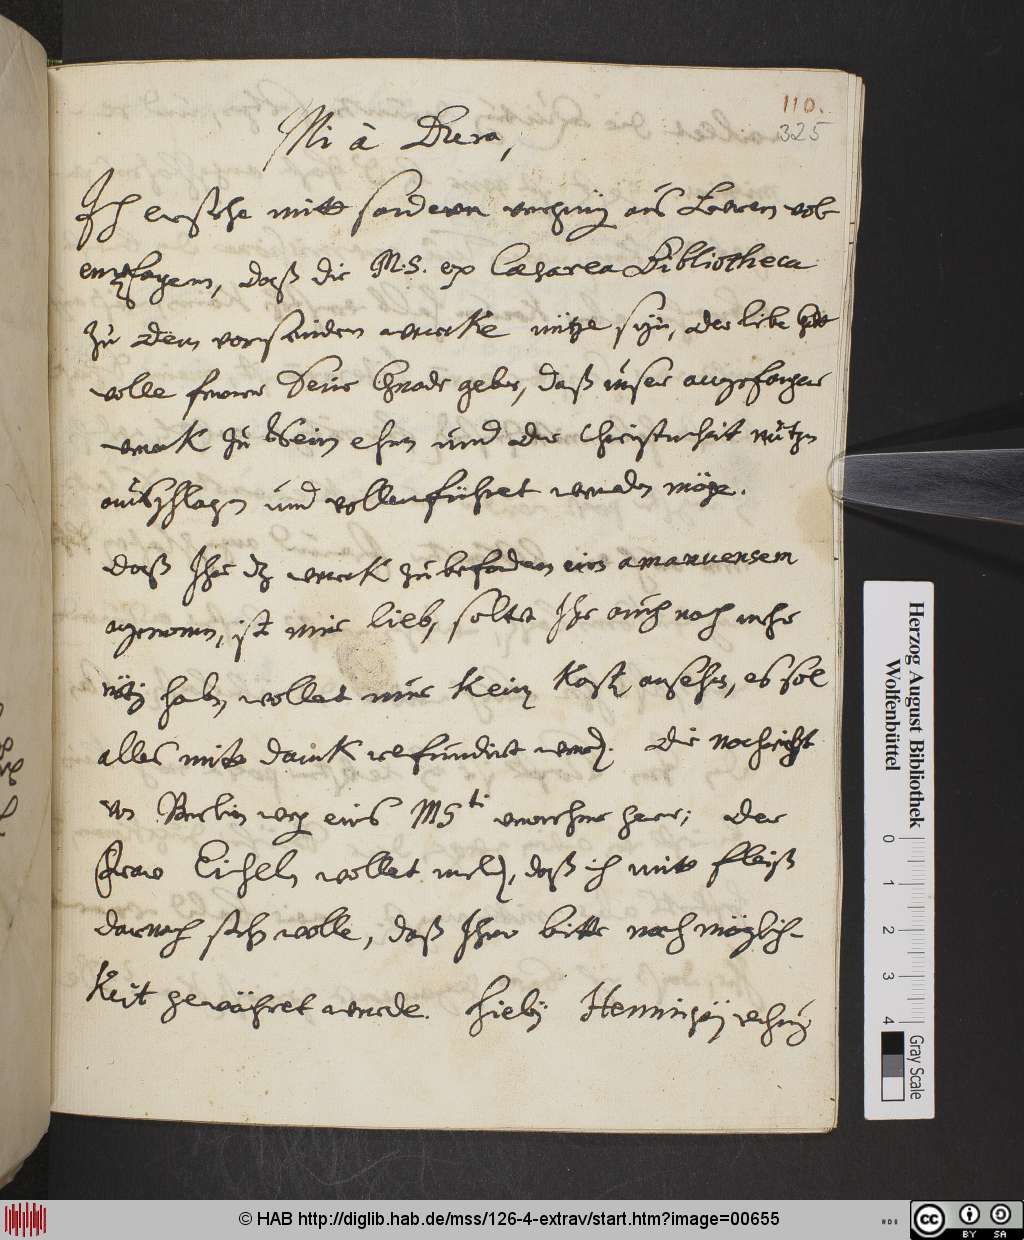 110.
325
Mi à Dura,
Ich ersehe mitt sonderm vergnüg aus Eurem
empfagenen, daß die M.S. ex Caesarea Bibliotheca
zu dem vorseinden wercke nütze seyn, der liebe Gott
wolle ferner seine Gnade geben, daß unser angefangen
werck zu sein ehren und der Christenheit nutzen
außschlagen und vollenführet werden möge.
daß Ihr dz werck zu befodern einen amanuensem
agenomen, ist mir lieb, soltet Ihr auch noch mehr
nötig haben, wollet nur kein Kosten ansehen, es sol
alles mitt danck refundirt werden. Die nachricht
von Berlin weg eines MSti gern; Der
Fraw Eicheln wollet melden, daß ich mitt fleiß
darnach sehen wolle, daß Ihre bitte nach möglich-
Keit gewähret werde. Hiebey Henning
Herzog August Bibliothek
Wolfenbüttel
0 1 2 3 4
Gray Scale
© HAB http://diglib.hab.de/mss/126-4-extrav/start.htm?image=00655
cc BY SA